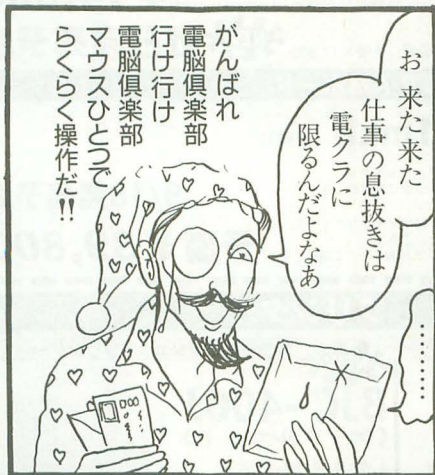 お 来た来た
仕事の息抜きは
電クラに
限るんだよなあ
がんばれ
電脳倶楽部
行け行け
電脳倶楽部
マウスひとつで
らくらく操作だ!!
………